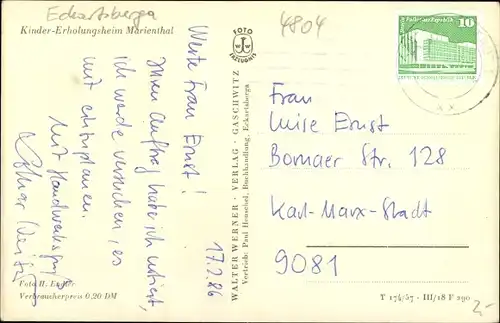 Eckartsberga
Kinder-Erholungsheim Marienthal
4804
FOTO
Werte Frau Ernst!
Ihren Auftrag habe ich notiert,
ich werde versuchen, es
mit einzuplanen.
Mit Handwerksgruß
17.2.86
Foto H.
Verbraucherpreis 0,20 DM
WALTER WERNER · VERLAG · GASCHWITZ
Vertrieb: Paul Henschel, Buchhandlung, Eckartsberga
10
Frau
Luise Ernst
Bornaer Str. 128
Karl-Marx-Stadt
9081
T 174/57 · III/18 F 290
2,-